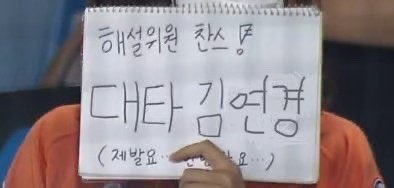 해설위원 찬스!
대타 김연경
(제발요..